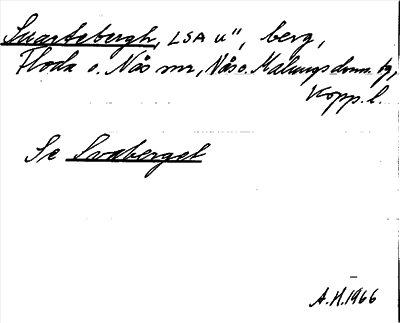 Svartebergh, LSA U", berg,
Floda o. Nås snr, Nås o. Malungs doms. tg,
Kopp. l.
Se Svaberget
A.H. 1966